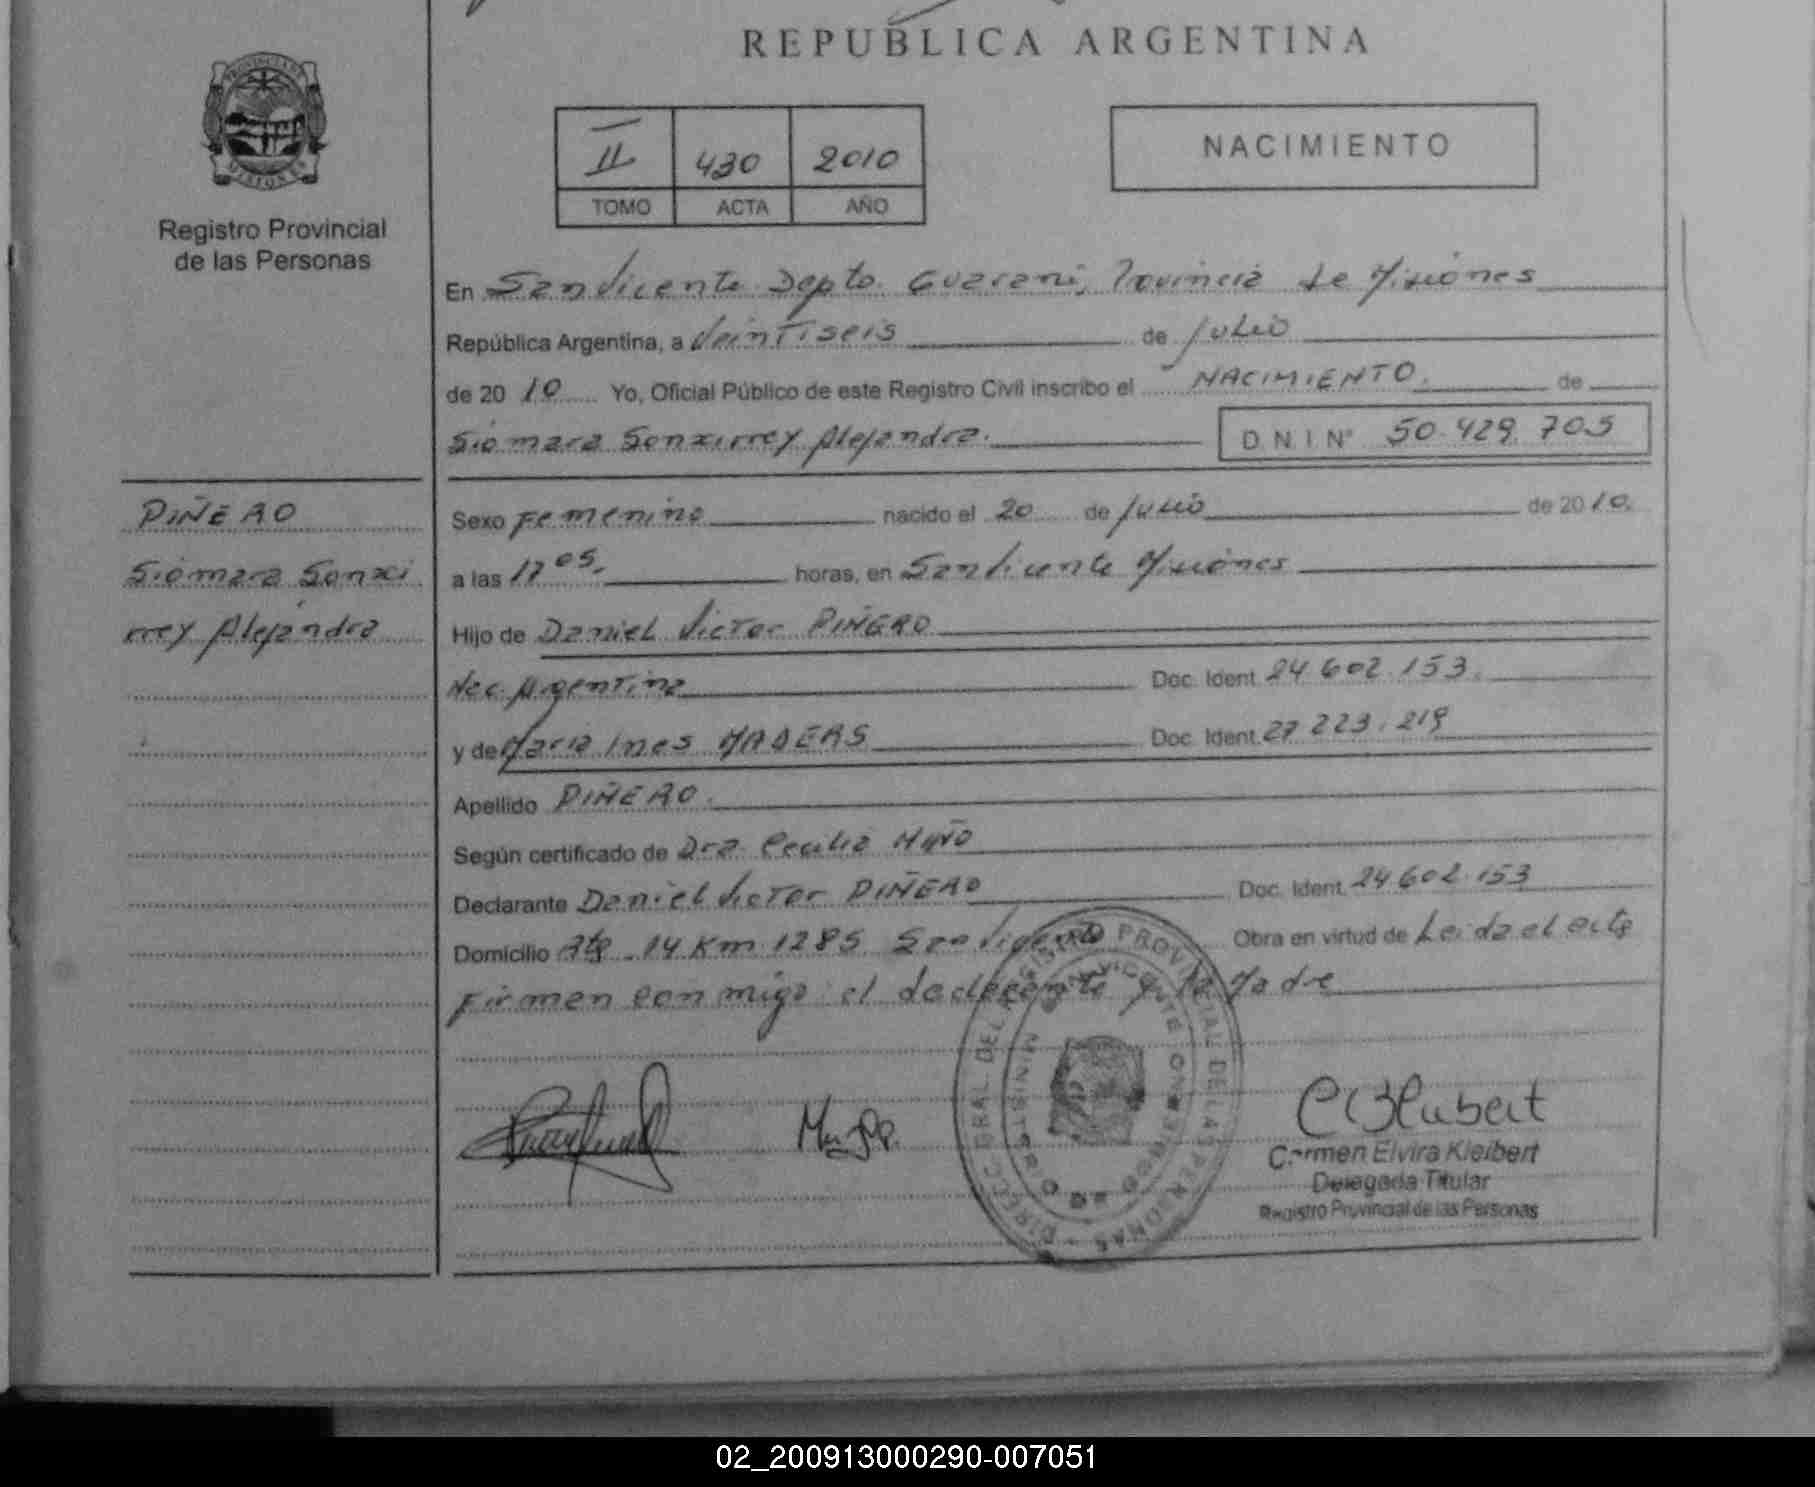 REPUBLICA ARGENTINA
PROVINCIA DE MISIONES
Registro Provincial
de las Personas
II 430 2010
TOMO ACTA AÑO
NACIMIENTO
En San Vicente Depto. Guarani, Provincia de Misiones
República Argentina, a Veintiseis de Julio
de 20 10 Yo, Oficial Público de este Registro Civil inscribo el NACIMIENTO. de
Siomara Sonxirrey Alejandra. D.N.I. Nº 50.429.705
PIÑERO
Siomara Sonxi
rrey Alejandra
Sexo Femenino nacido el 20 de Julio de 2010.
a las 17 05. horas, en San Vicente Misiones
Hijo de Daniel Victor PIÑERO
Nac. Argentina Doc. Ident. 24.602.153.
y de Maria Ines MADERS Doc. Ident. 27.223.219
Apellido PIÑERO.
Según certificado de Dra. Cecilia
Declarante Daniel Victor PIÑERO Doc. Ident. 24.602.153
Domicilio Rta. 14 Km 1285 San Vicente Obra en virtud de Leida el acta
Firman conmigo el declarante y la Madre
DIREC. GRAL. DEL REGISTRO PROVINCIAL DE LAS PERSONAS
MINISTERIO DE GOBIERNO
SAN VICENTE
Carmen Elvira Kleibert
Delegada Titular
Registro Provincial de las Personas
02_200913000290-007051